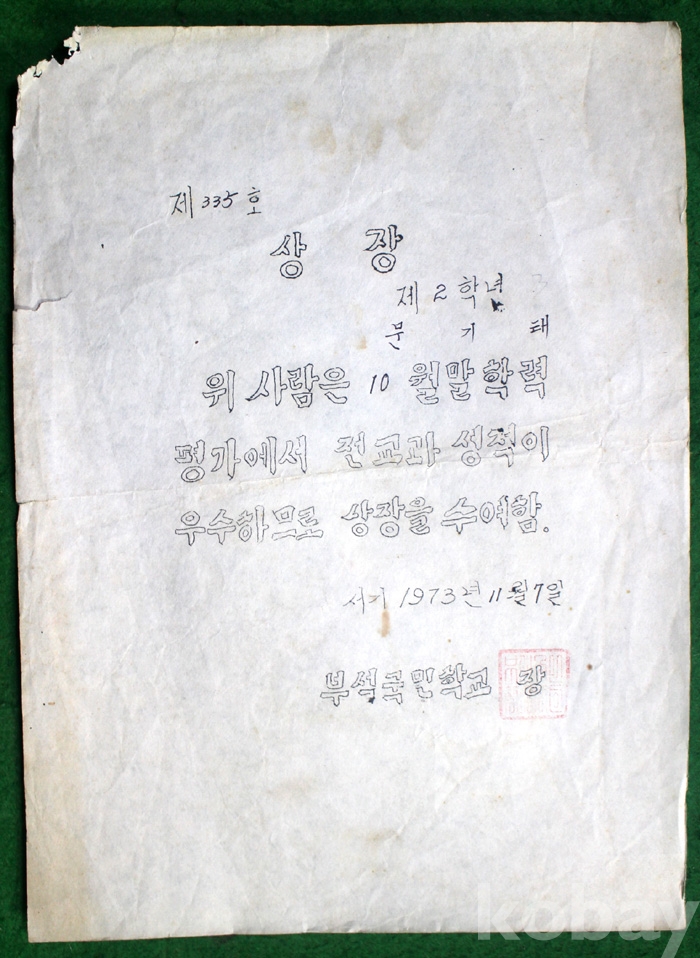 제 335 호
상 장
제 2 학년
문 기 태
위 사람은 10 월말학력
평가에서 전교과 성적이
우수하므로 상장을 수여함.
서기 1973년 11월 7일
부석국민학교 장
kobay